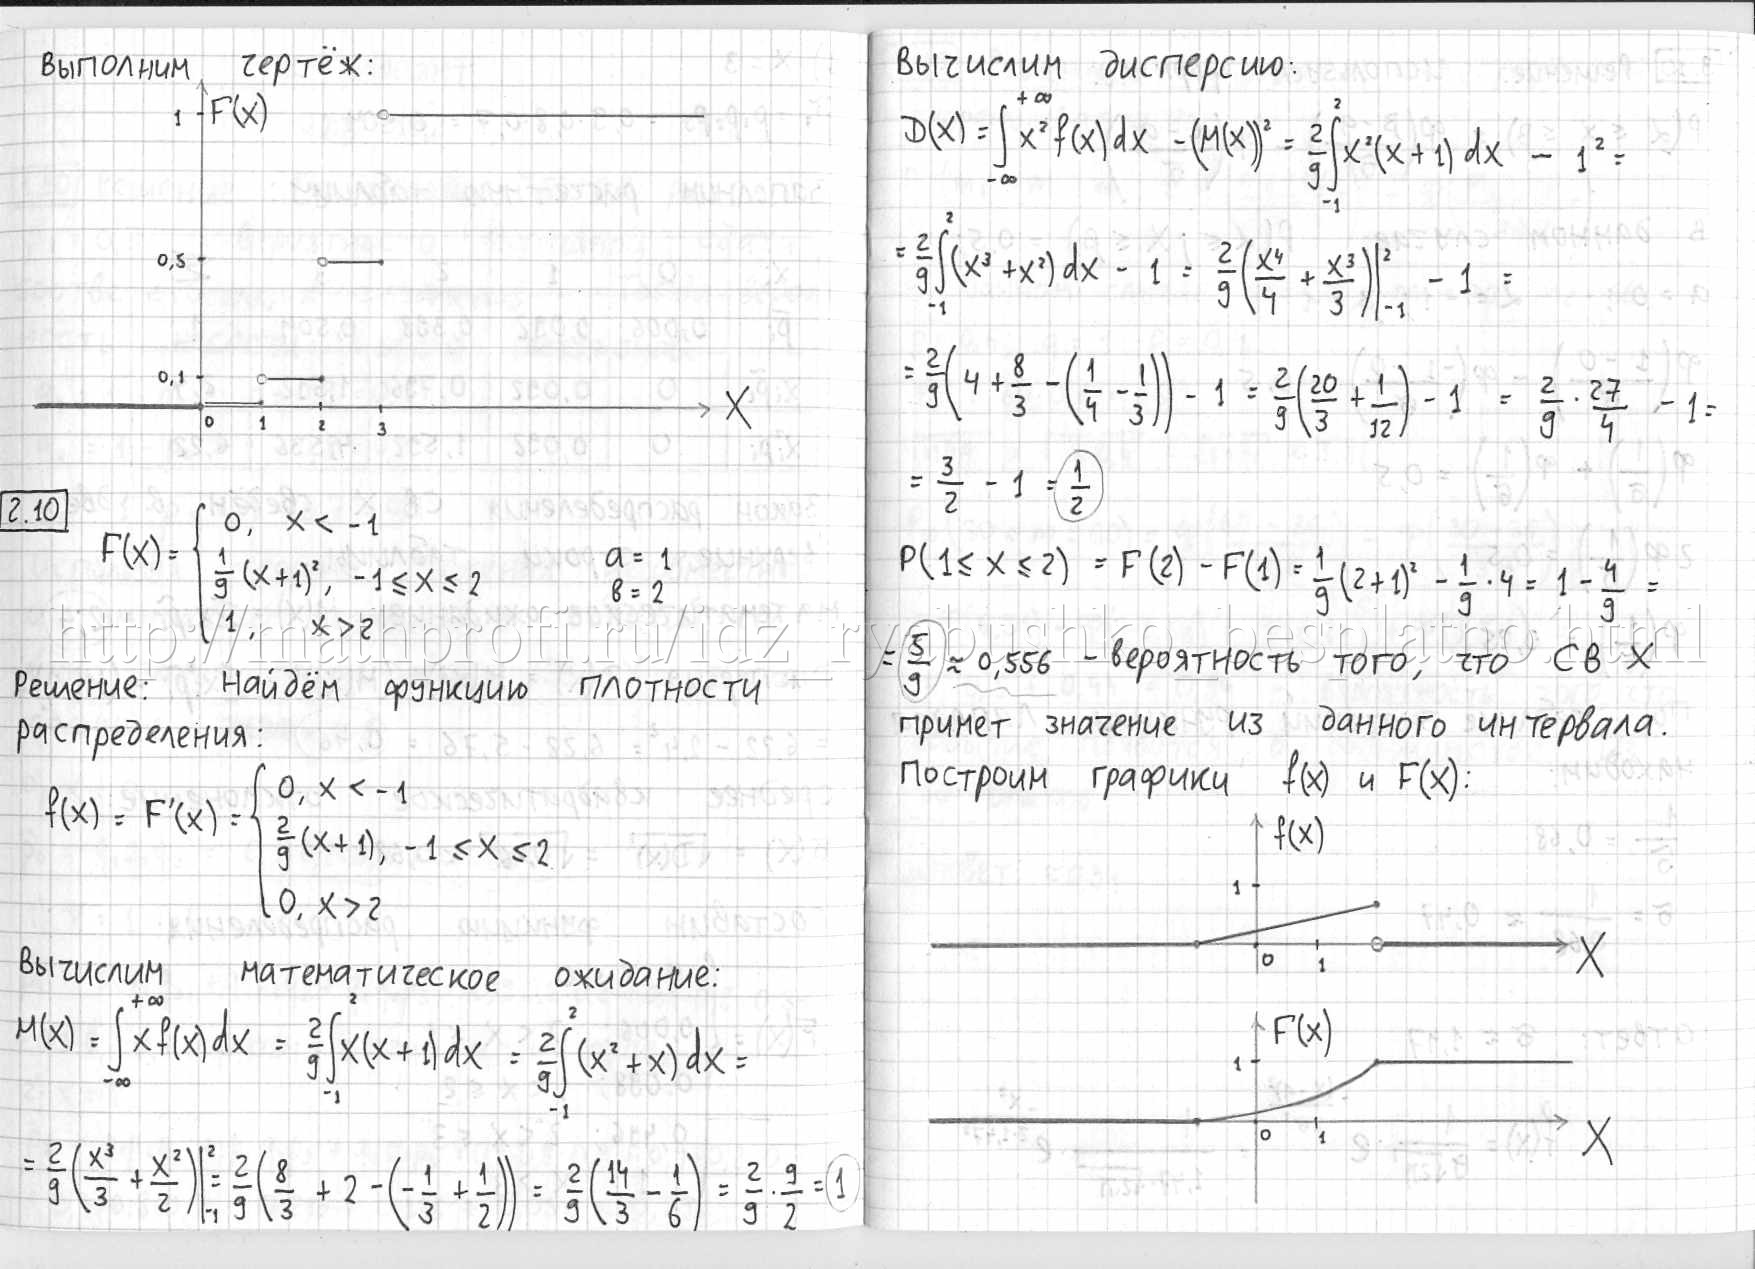 Выполним чертёж:
1 F(x)
0,5
0,1
0 1 2 3 X
2.10
F(x) = { 0, x < -1
1/9 (x+1)², -1 ≤ x ≤ 2
1, x > 2
a = 1
в = 2
Решение: Найдём функцию плотности
распределения:
f(x) = F'(x) = { 0, x < -1
2/9 (x+1), -1 ≤ x ≤ 2
0, x > 2
Вычислим математическое ожидание:
M(x) = ∫_{-∞}^{+∞} x f(x) dx = 2/9 ∫_{-1}^{2} x(x+1) dx = 2/9 ∫_{-1}^{2} (x² + x) dx =
= 2/9 (x³/3 + x²/2)|_{-1}^{2} = 2/9 (8/3 + 2 - (-1/3 + 1/2)) = 2/9 (14/3 - 1/6) = 2/9 · 9/2 = 1
Вычислим дисперсию:
D(x) = ∫_{-∞}^{+∞} x² f(x) dx - (M(x))² = 2/9 ∫_{-1}^{2} x²(x+1) dx - 1² =
= 2/9 ∫_{-1}^{2} (x³ + x²) dx - 1 = 2/9 (x⁴/4 + x³/3)|_{-1}^{2} - 1 =
= 2/9 (4 + 8/3 - (1/4 - 1/3)) - 1 = 2/9 (20/3 + 1/12) - 1 = 2/9 · 27/4 - 1 =
= 3/2 - 1 = 1/2
P(1 ≤ x ≤ 2) = F(2) - F(1) = 1/9 (2+1)² - 1/9 · 4 = 1 - 4/9 =
= 5/9 ≈ 0,556 - вероятность того, что СВ X
примет значение из данного интервала.
Построим графики f(x) и F(x):
f(x)
1
0 1 X
F(x)
1
0 1 X
http://mathprofi.ru/idz_ryabushko_besplatno.html